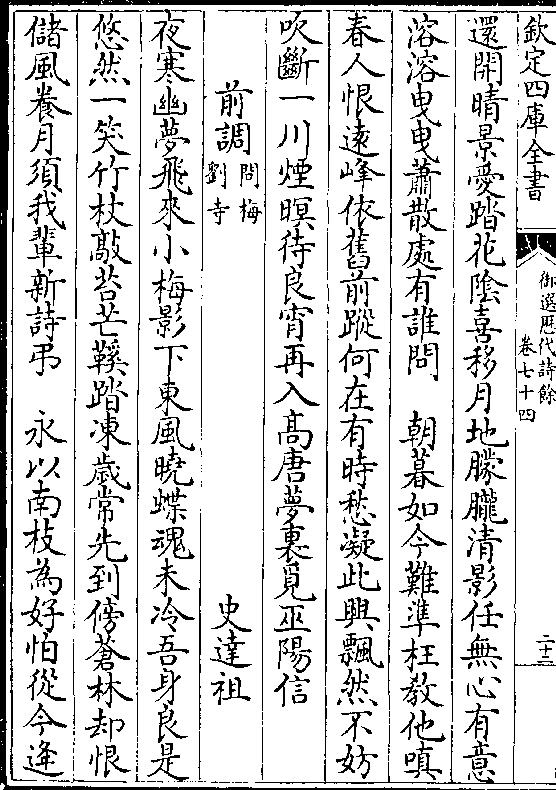 欽定四庫全書
御選歷代詩餘
卷七十四
二十二
還開晴景愛踏花陰喜移月地朦朧清影任無心有意
溶溶曳曳蕭散處有誰問　朝暮如今難準枉教他嗔
春人恨遠峰依舊前蹤何在有時愁凝此興飄然不妨
吹斷一川煙暝待良宵再入高唐夢裏覓巫陽信
前調 問梅劉寺　史達祖
夜寒幽夢飛來小梅影下東風曉蝶魂未冷吾身良是
悠然一笑竹杖敲苔芒鞵踏凍歲常先到傍蒼林却恨
儲風養月須我輩新詩弔　永以南枝為好怕從今逢